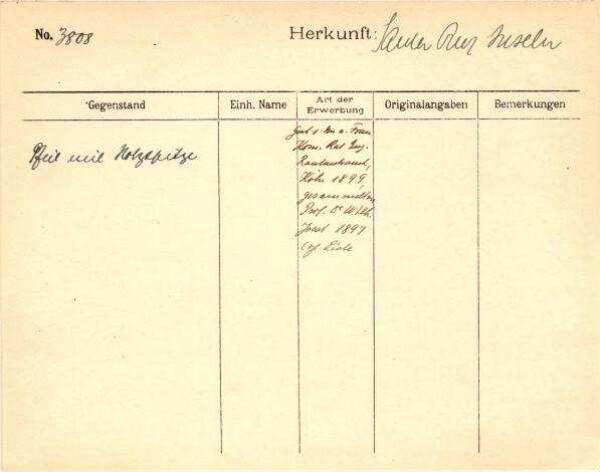 No. 3808
Herkunft: Santa Cruz Inseln
Gegenstand
Einh. Name
Art der Erwerbung
Originalangaben
Bemerkungen
Pfeil mit Holzspitze
Gesch. v. Hrn u. Frau
Kom. Rat Eug.
Rautenstrauch,
Köln 1899,
gesammelt von
Prof. Dr Wilh.
Joest 1897
cf. Liste